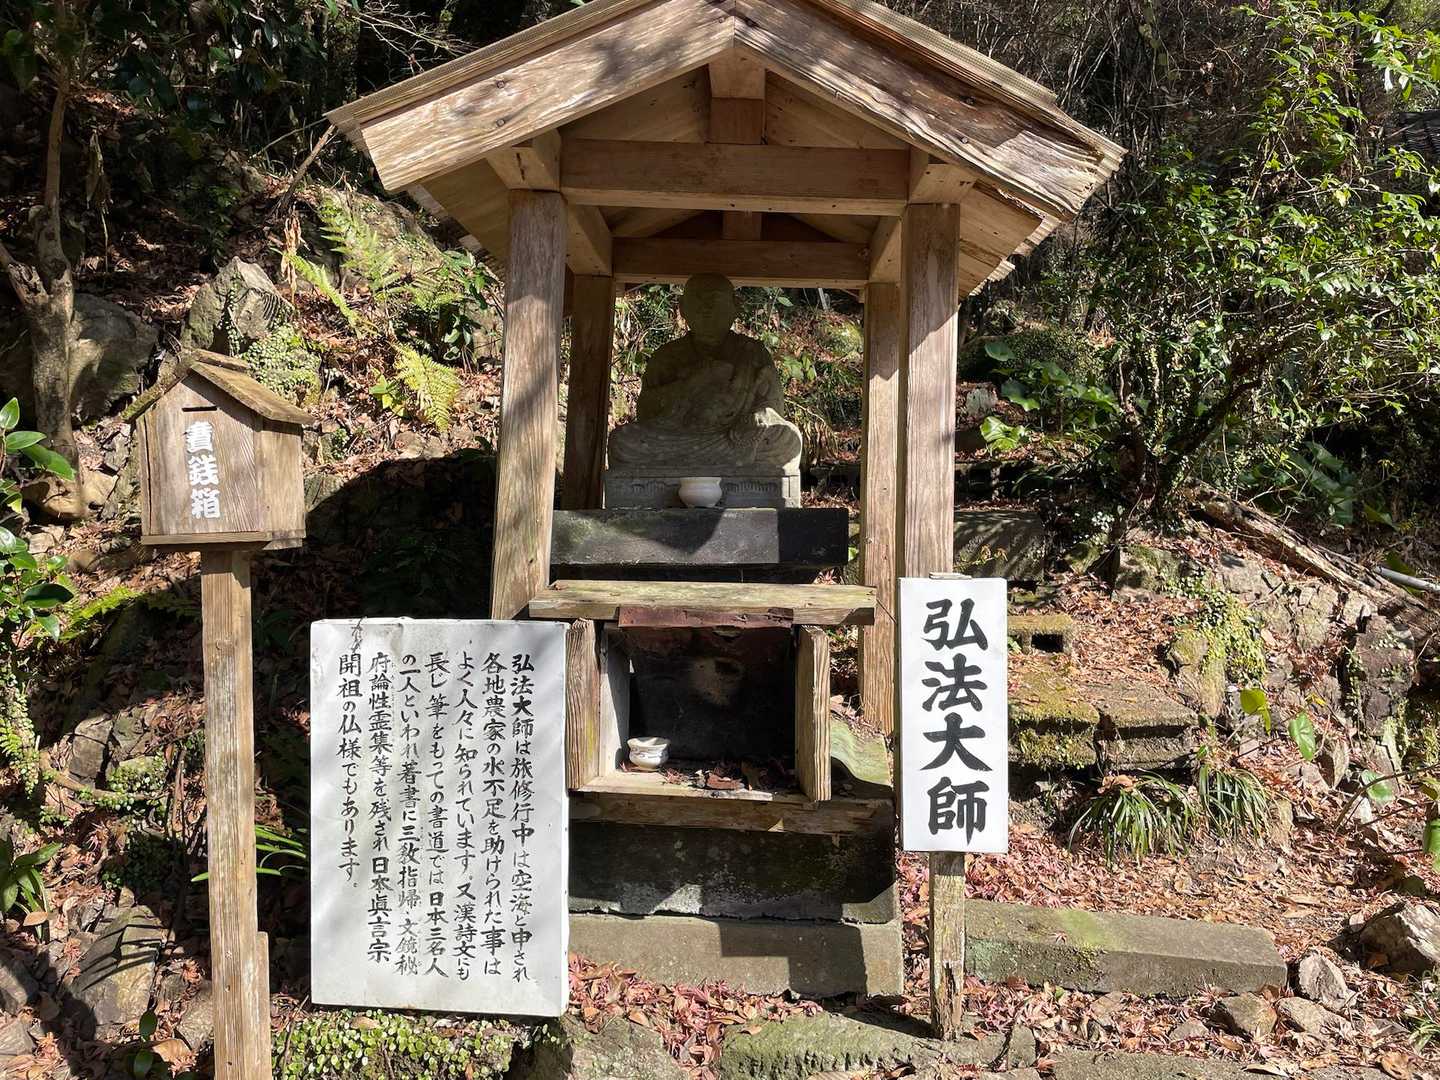 弘法大師
弘法大師は旅修行中は空海と申され
各地農家の水不足を助けられた事は
よく人々に知られています。又漢詩文にも
長じ筆をもっての書道では日本三名人
の一人といわれ著書に三教指帰、文鏡秘
府論性霊集等を残され日本眞言宗
開祖の仏様でもあります。
賽銭箱